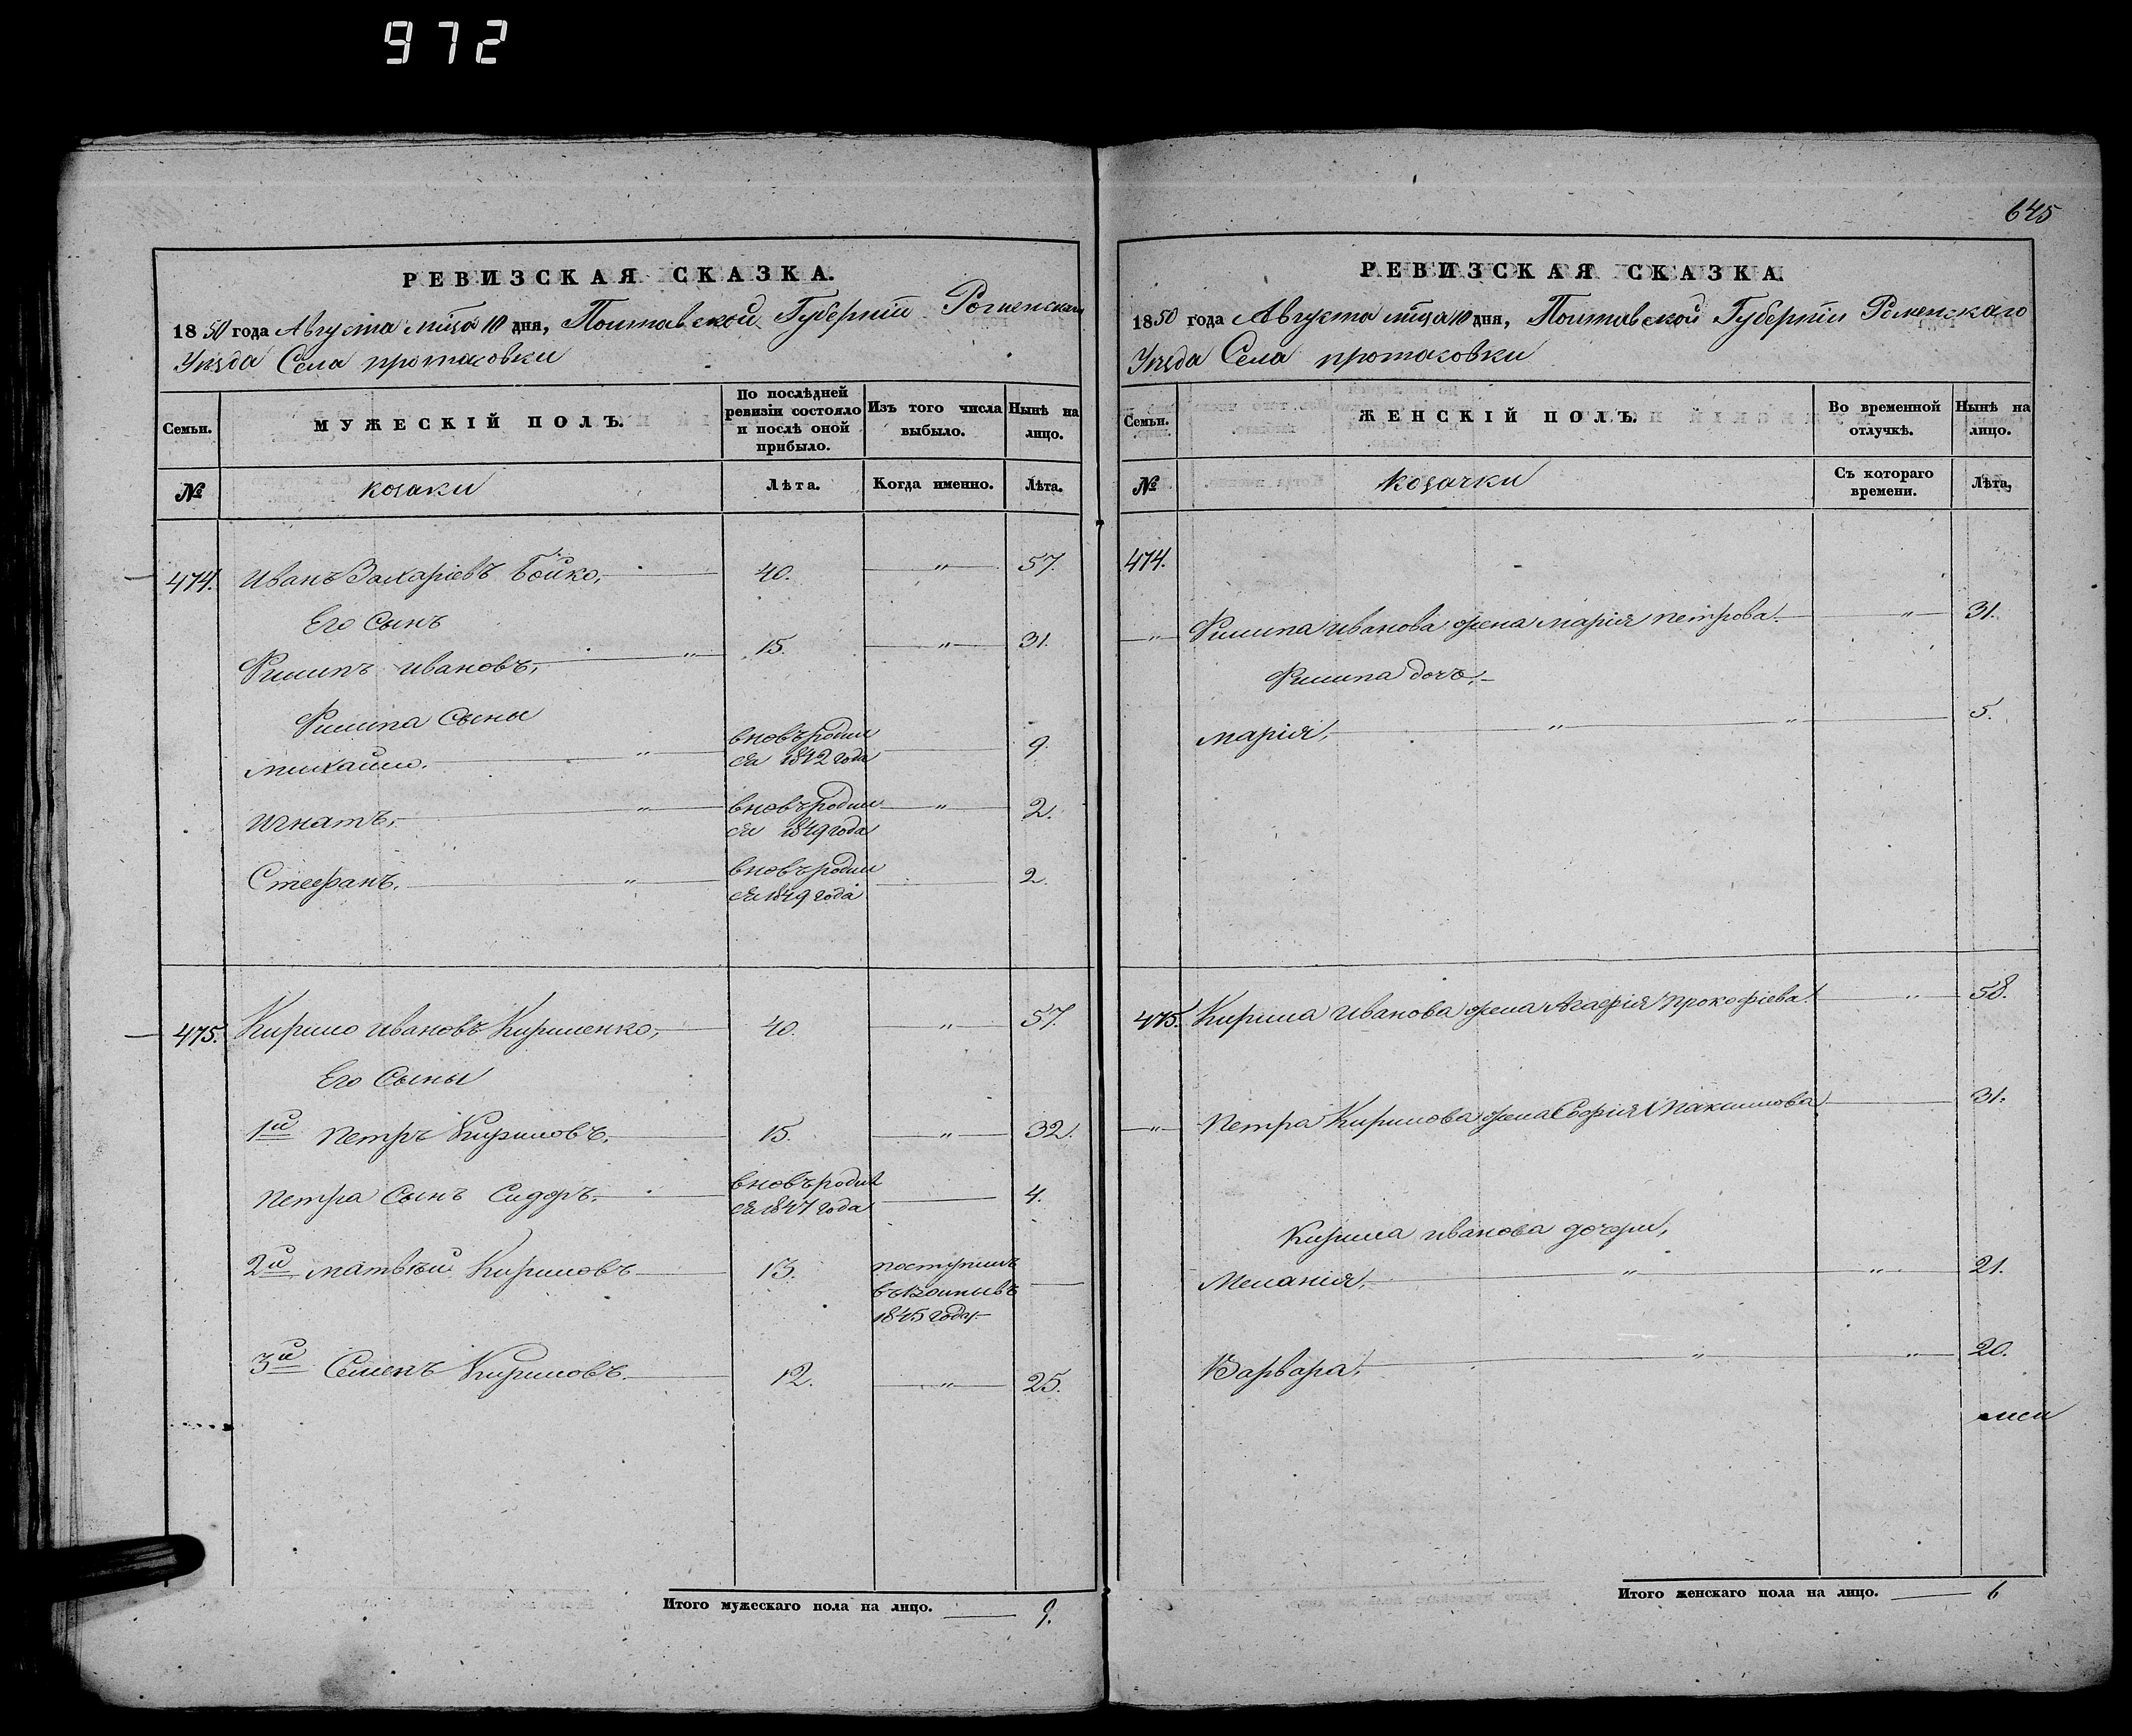 972
645
РЕВИЗСКАЯ СКАЗКА.
1850 года Августа мца 10 дня, Полтавской Губерніи Роменскаго
Уѣзда Села протасовки
Семьи.
МУЖЕСКІЙ ПОЛЪ.
По послѣдней ревизіи состояло и послѣ оной прибыло.
Изъ того числа выбыло.
Нынѣ на лицо.
№
козаки
Лѣта.
Когда именно.
Лѣта.
474. Иванъ Захаріевъ Бойко, 40. " 57.
Его Сынъ
Филипъ Ивановъ, " 15. " 31.
Филипа Сыны
михайло. " вновь родил
ся 1842 года 9.
игнатъ, " вновь родил
ся 1849 года " 2.
Стефанъ. " вновь родил
ся 1849 года 2.
475. Кирило Ивановъ Кириленко, 40. " 57.
Его Сыны
1й Петръ Кириловъ. 15. " 32.
Петра Сынъ Сидоръ. вновь родил
ся 1847 года 4.
2й матвѣй Кириловъ 13. поступилъ
1845 года
3й Семенъ Кириловъ. 12. " 25.
Итого мужескаго пола на лицо. 9.
РЕВИЗСКАЯ СКАЗКА.
1850 года Августа мца 10 дня, Полтавской Губерніи Роменскаго
Уѣзда Села протасовки
Семьи.
ЖЕНСКІЙ ПОЛЪ.
Во временной отлучкѣ.
Нынѣ на лицо.
№
козачки
Съ котораго времени.
Лѣта,
474.
" Филипа Иванова жена марія петрова. " 31.
Филипа дочь,
марія, " " 5.
475. Кирила Иванова жена Агафія Прокофіева. " 58.
" Петра Кирилова жена Софія Максимова 31.
Кирила иванова дочери,
Меланія, " " 21.
Варвара, " " 20.
Итого женскаго пола на лицо. 6